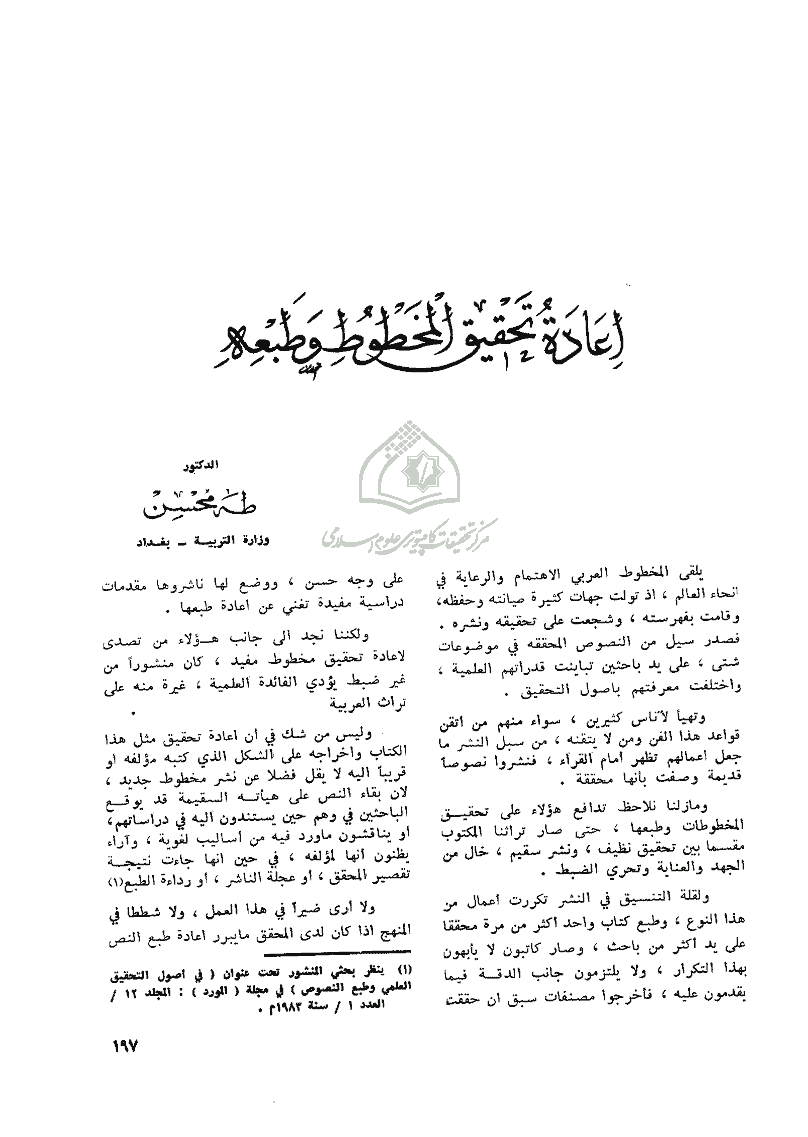 إِعَادَةُ تَحْقِيقِ الْمَخْطُوطِ وَطَبْعِهِ
الدكتور
طه محسن
وزارة التربية ــ بغداد
مركز تحقیقات کامپیوتری علوم اسلامی
يلقى المخطوط العربي الاهتمام والرعاية في
انحاء العالم ، اذ تولت جهات كثيرة صيانته وحفظه،
وقامت بفهرسته ، وشجعت على تحقيقه ونشره .
فصدر سيل من النصوص المحققه في موضوعات
شتى ، على يد باحثين تباينت قدراتهم العلمية ،
واختلفت معرفتهم باصول التحقيق .
وتهيأ لأناس كثيرين ، سواء منهم من اتقن
قواعد هذا الفن ومن لا يتقنه ، من سبل النشر ما
جعل اعمالهم تظهر أمام القرآء ، فنشروا نصوصاً
قديمة وصفت بأنها محققة .
ومازلنا نلاحظ تدافع هؤلاء على تحقيــق
المخطوطات وطبعها ، حتى صار تراثنا المكتوب
مقسما بين تحقيق نظيف ، ونشر سقيم ، خال من
الجهد والعناية وتحري الضبط .
ولقلة التنسيق في النشر تكررت أعمال من
هذا النوع ، وطبع كتاب واحد اكثر من مرة محققا
على يد أكثر من باحث ، وصار كاتبون لا يأبهون
بهذا التكرار ، ولا يلتزمون جانب الدقــة فيما
يقدمون عليه ، فأخرجوا مصنفات سبق ان حققت
على وجه حسن ، ووضع لها ناشروها مقدمات
دراسية مفيدة تغني عن اعادة طبعها .
ولكننا نجد الى جانب هــؤلاء من تصدى
لاعادة تحقيق مخطوط مفيد ، كان منشوراً من
غير ضبط يؤدي الفائدة العلمية ، غيرة منه على
تراث العربية .
وليس من شك في ان اعادة تحقيق مثل هذا
الكتاب واخراجه على الشكل الذي كتبه مؤلفه او
قريباً اليه لا يقل فضلا عن نشر مخطوط جديد ،
لان بقاء النص على هيأتــه السقيمة قد يوقــع
الباحثين في وهم حين يستندون اليه في دراساتهم،
او يناقشون ماورد فيه من أساليب لغوية ، وآراء
يظنون انها لمؤلفه ، في حين انها جاءت نتيجــة
تقصير المحقق ، او عجلة الناشر ، أو رداءة الطبع(١)
ولا أرى ضيراً في هذا العمل ، ولا شططا في
المنهج اذا كان لدى المحقق مايبرر اعادة طبع النص
(١) ينظر بحثي المنشور تحت عنوان ( في اصول التحقيق
العلمي وطبع النصوص ) في مجلة ( المورد ) : المجلد ١٢ /
العدد ١ / سنة ١٩٨٣م .
١٩٧